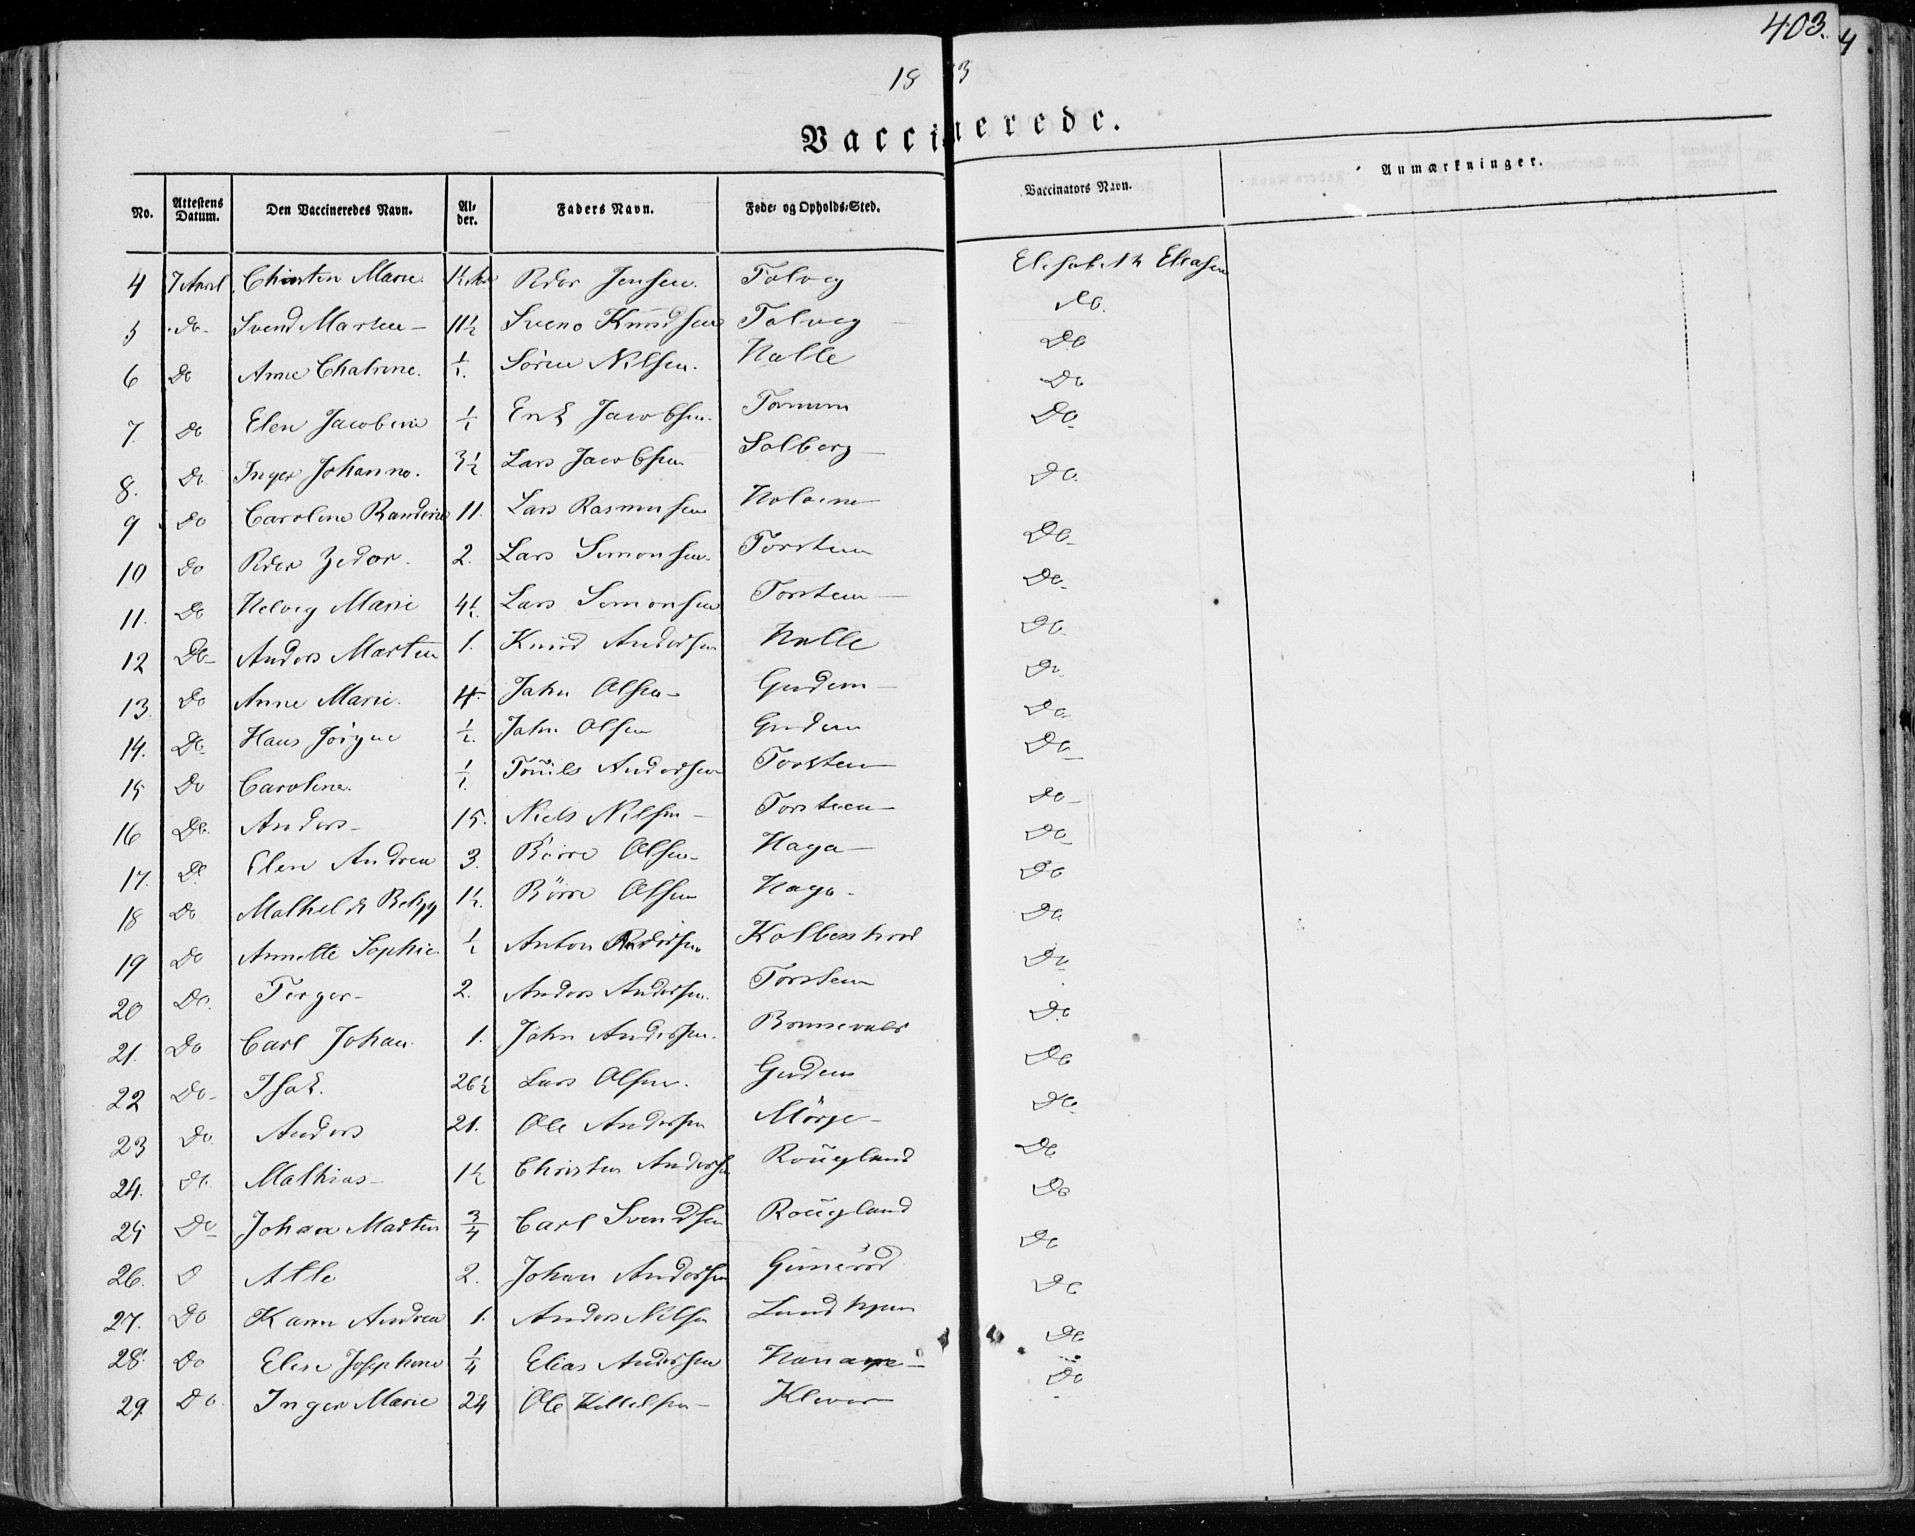 403.
4
18 3
Vaccinerede.
No. Attestens Datum. Den Vaccineredes Navn. Alder. Faders Navn. Føde- og Opholds-Sted. Vaccinators Navn. Anmærkninger.
4 7 April Christen Marie. Peder Jensen. Tolvey Elisabeth Eliasen
5 Do Svend Marten 11½ Svend Knudsen Tolvey Do.
6 Do Anne Chatrine. 1/1. Søren Nilsen. Halle Do
7. Do Elen Jacobine 1/1 Erik Jacobsen. Do
8. Do Inger Johanne. 3½ Lars Jacobsen Solberg Do.
9 Do Caroline Randine 11. Lars Rasmusen Do.
10 Do Peder Zedor. 2. Lars Simonsen. Torsten Do.
11. Do Helvig Marie 4½. Lars Simonsen Torsten Do.
12 Do Anders Marten 1. Knud Andersen Halle Do.
13. Do Anne Marie. 4. John Olsen Gudem Do.
14. Do Hans Jørgen ½. John Olsen Gudem Do
15 Do Caroline. 1/1. Trüils Andersen Torsten Do
16 Do. Anders 15. Niels Nilsen Torsteen Do
17. Do Elen Andrea 3. Börre Olsen Haga Do
18 Do Mathilde Betzy 1½. Börre Olsen Haga. Do
19 Do Annette Sophie ½ Anton Pedersen Kolbenhrod Do.
20 Do. Terger 2. Anders Andersen. Torsten Do
21. Do Carl Johan. 1. John Andersen. Bonsevald Do
22 Do Isak. 26½ Lars Olsen. Gudem Do
23 Do. Anders 21. Ole Andersen Mörge Do.
24. Do. Mathias 1½ Christen Andersen Roügland Do
25 Do Johan Marten 3/4 Carl Svendsen Roügland Do
26. D Atle 2. Johan Andersen Günnerød Do
27. Do Karen Andrea 1. Anders Nilsen Do
28. Do Elise Josephine 1/4 Elias Andersen Do
29. Do. Inger Marie 24 Ole Kittelsen Klever Do